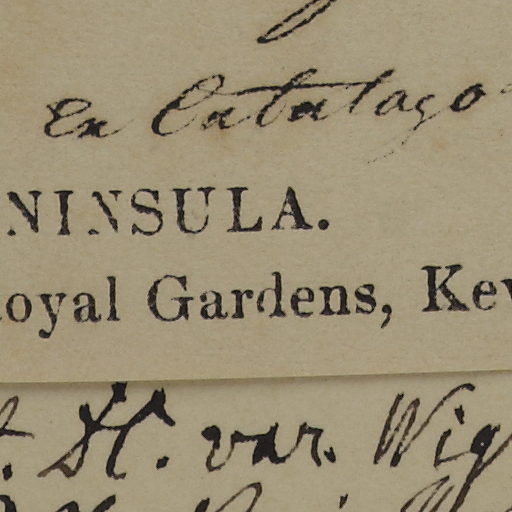 En Catalago
NINSULA.
oyal Gardens, Kew
St. var. Wig